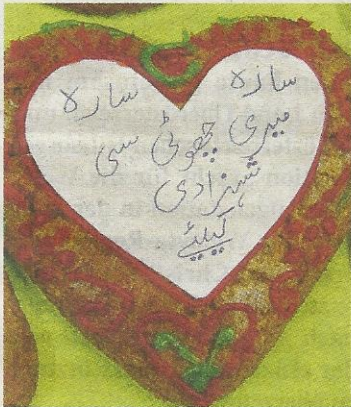 سارہ سارہ
میری چھوٹی سی
شہزادی
کیلئے